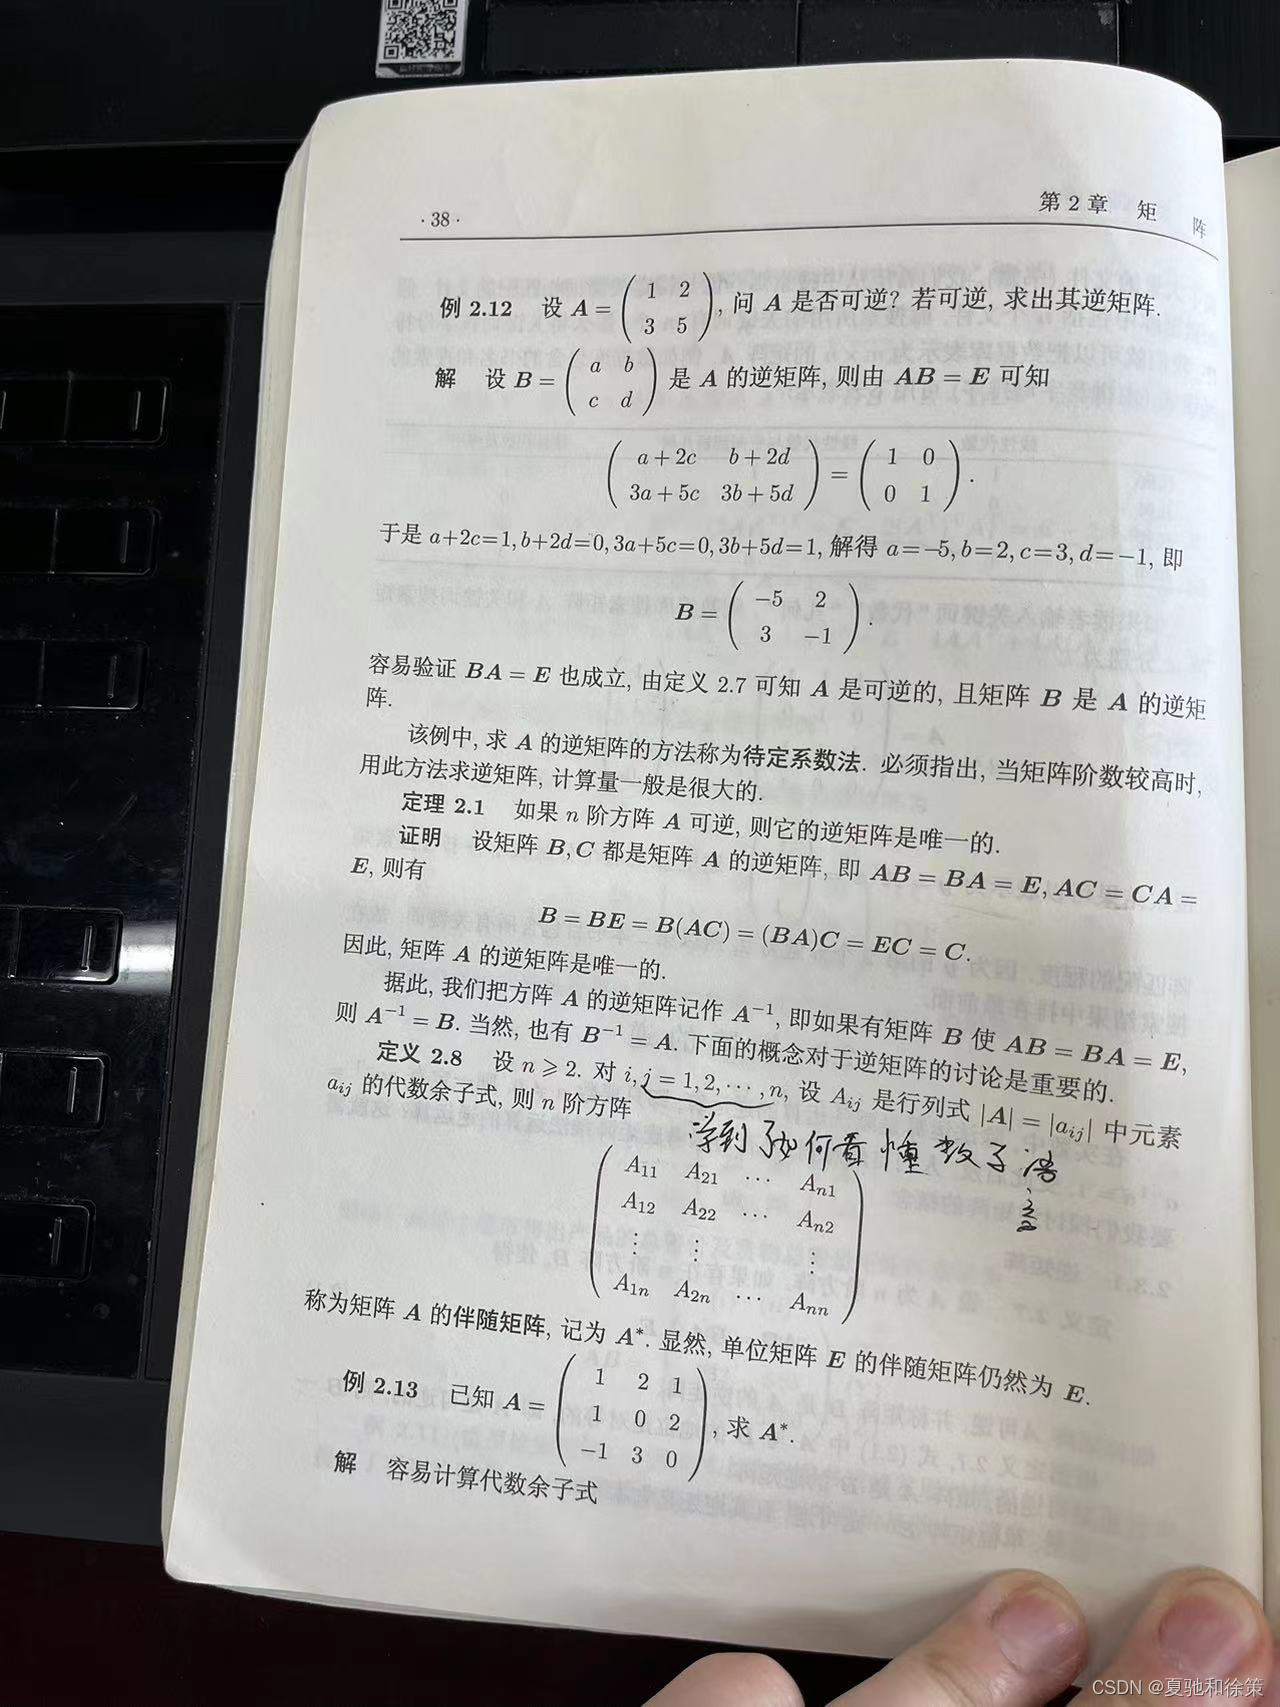 · 38 ·
第 2 章 矩 阵
例 2.12 设 A = ( 1 2 ; 3 5 ), 问 A 是否可逆? 若可逆, 求出其逆矩阵.
解 设 B = ( a b ; c d ) 是 A 的逆矩阵, 则由 AB = E 可知
( a + 2c b + 2d ; 3a + 5c 3b + 5d ) = ( 1 0 ; 0 1 ) .
于是 a+2c=1, b+2d=0, 3a+5c=0, 3b+5d=1, 解得 a=−5, b=2, c=3, d=−1, 即
B = ( −5 2 ; 3 −1 ) .
容易验证 BA = E 也成立, 由定义 2.7 可知 A 是可逆的, 且矩阵 B 是 A 的逆矩
阵.
该例中, 求 A 的逆矩阵的方法称为待定系数法. 必须指出, 当矩阵阶数较高时,
用此方法求逆矩阵, 计算量一般是很大的.
定理 2.1 如果 n 阶方阵 A 可逆, 则它的逆矩阵是唯一的.
证明 设矩阵 B, C 都是矩阵 A 的逆矩阵, 即 AB = BA = E, AC = CA =
E, 则有
B = BE = B(AC) = (BA)C = EC = C.
因此, 矩阵 A 的逆矩阵是唯一的.
据此, 我们把方阵 A 的逆矩阵记作 A⁻¹, 即如果有矩阵 B 使 AB = BA = E,
则 A⁻¹ = B. 当然, 也有 B⁻¹ = A. 下面的概念对于逆矩阵的讨论是重要的.
定义 2.8 设 n ⩾ 2. 对 i, j = 1, 2, ··· , n, 设 Aij 是行列式 |A| = |aij| 中元素
aij 的代数余子式, 则 n 阶方阵
学到了如何看懂数子语
言
A11 A21 ··· An1
A12 A22 ··· An2
⋮ ⋮ ⋮
A1n A2n ··· Ann
称为矩阵 A 的伴随矩阵, 记为 A*. 显然, 单位矩阵 E 的伴随矩阵仍然为 E.
例 2.13 已知 A = ( 1 2 1 ; 1 0 2 ; −1 3 0 ), 求 A*.
解 容易计算代数余子式
CSDN @夏驰和徐策